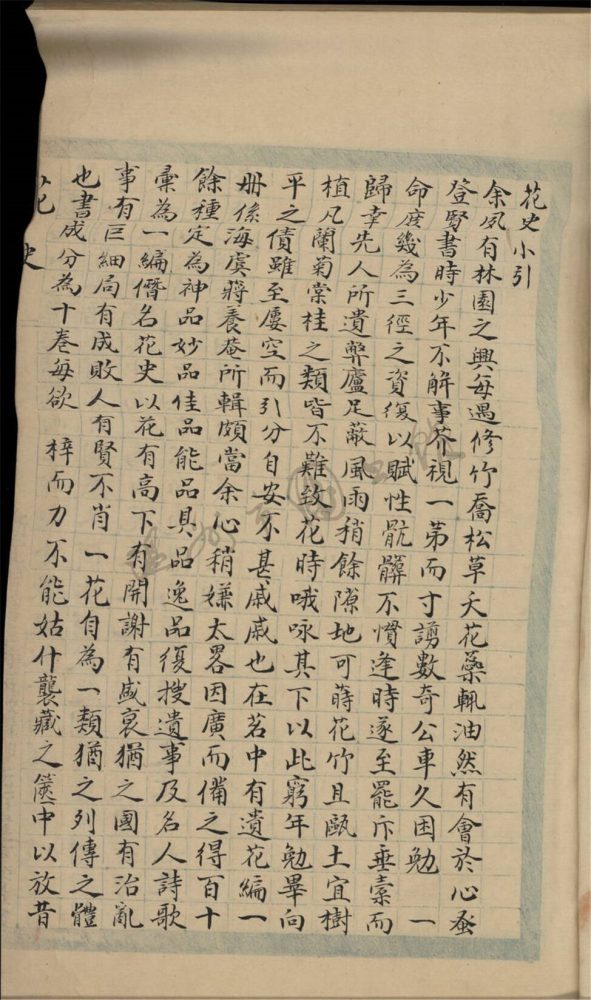 花史小引
余夙有林園之興每遇修竹喬松草夭花蘂輒油然有會於心蚤
登賢書時少年不解事芥視一第而寸謭數奇公車久困勉一
命庶幾為三徑之資復以賦性骯髒不慣逢時遂至罷斥垂橐而
歸幸先人所遺弊廬足蔽風雨稍餘隙地可蒔花竹且甌土宜樹
植凡蘭菊棠桂之類皆不難致花時哦咏其下以此窮年勉畢向
平之債雖至屢空而引分自安不甚戚戚也在茗中有遺花編一
册係海虞蔣養菴所輯頗當余心稍嫌太畧因廣而備之得百十
餘種定為神品妙品佳品能品具品逸品復搜遺事及名人詩歌
彙為一編僭名花史以花有高下有開謝有盛衰猶之國有治亂
事有巨細局有成敗人有賢不肖一花自為一類猶之列傳之體
也書成分為十卷每欲 梓而力不能姑什襲藏之篋中以放昔
花史